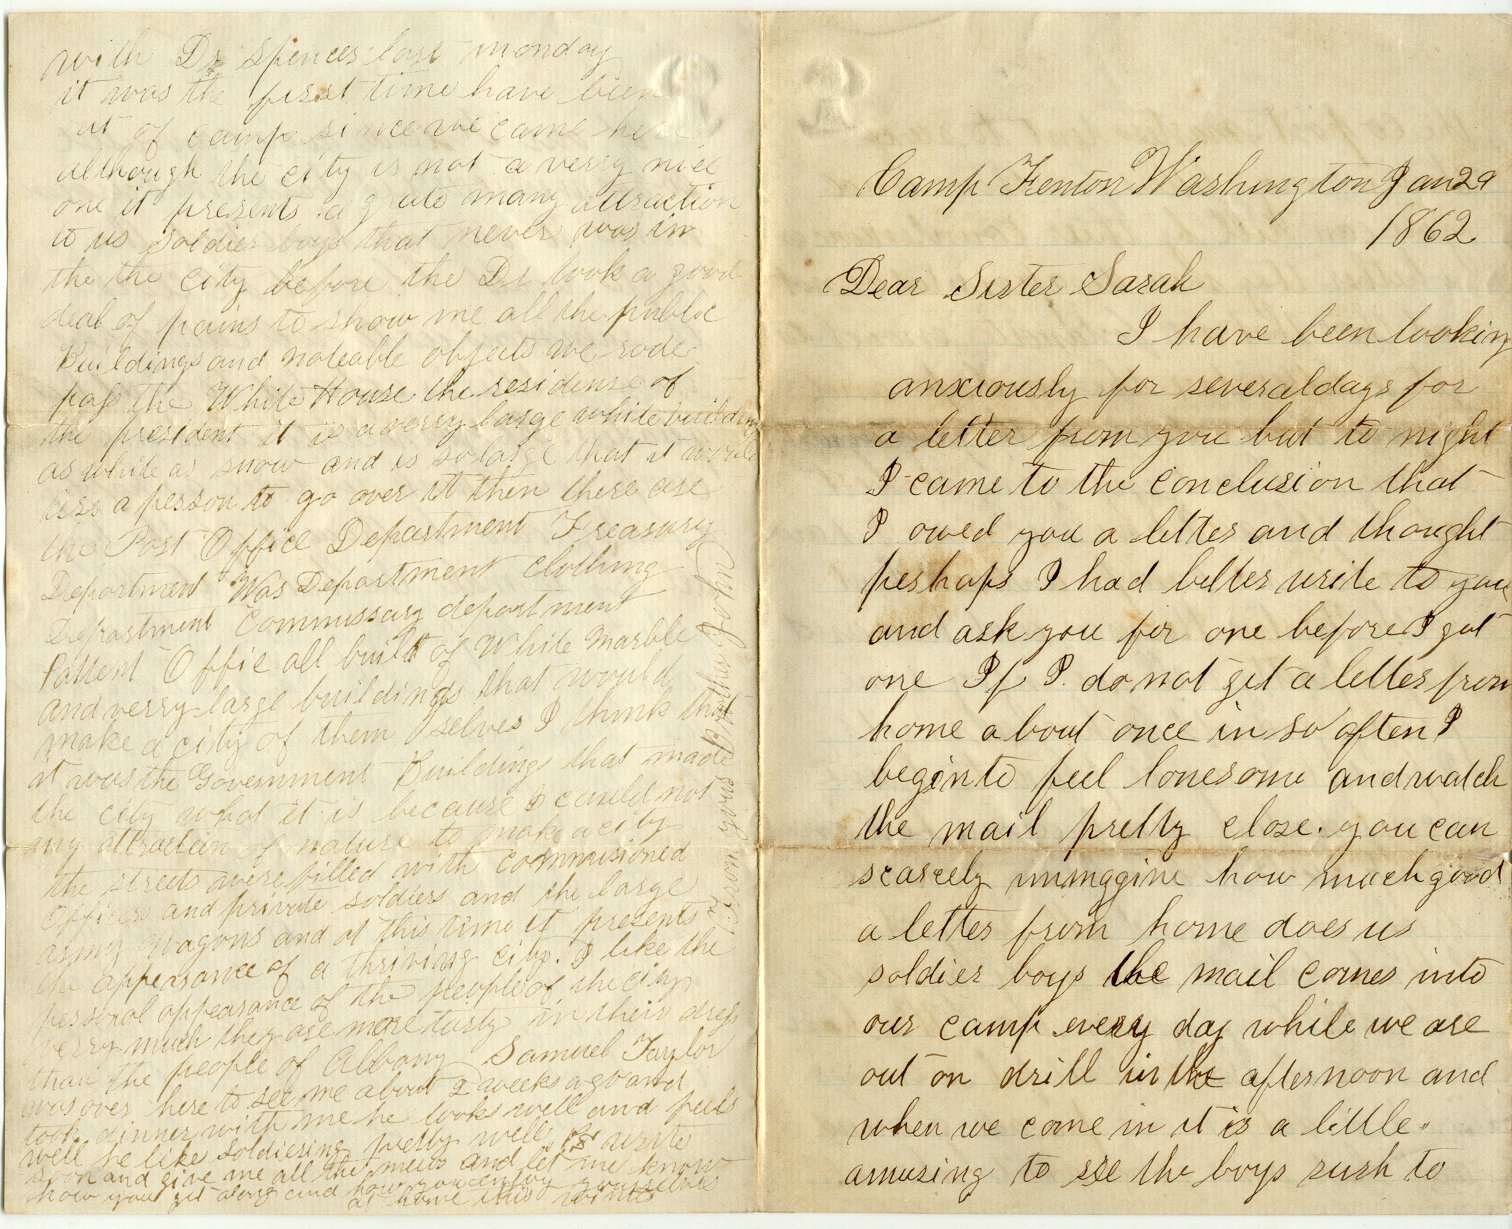 Camp Fenton Washington Jan 29
1862
Dear Sister Sarah
I have been looking
anxiously for several days for
a letter from you but to night
I came to the conclusion that
I owed you a letter and thought
perhaps I had better write to you
and ask you for one before I got
one If I do not get a letter from
home about once in so often I
begin to feel lonesome and watch
the mail pretty close. you can
scarcely immaggine how much good
a letter from home does us
soldier boys the mail comes into
our camp every day while we are
out on drill in the afternoon and
when we come in it is a little
amusing to see the boys rush to
with Dr Spencer last monday
it was the first time have been
ut of camp since we came here
although the city is not a verry nice
one it presents a g ate many attraction
to us soldier boys that never was in
the the city before the Dr took a good
deal of pains to show me all the public
Buildings and noteable objects we rode
pass the White House the residense of
the president it is a verry large white building
as white as snow and is so large that it would
tire a person to go over it then there are
the Post Office Department Treasury
Department War Department clothing
Department Commissary department
Pattent Offic all built of White marble
and verry large buildings that would
make a city of them selves I think that
it was the Government Buildings that made
the city what it is because I could not
any attraction of nature to make a city
the streets were filled with commisioned
Officers and private soldiers and the large
army wagons and at this time it presents
the appearance of a thriving city. I like the
personal appearance of the people of the city
verry much they are more tasty in their dress
than the people of Albany Samuel Taylor
was over here to see me about 2 weeks ago and
took dinner with me he looks well and feels
well he like soldiering pretty well write
soon and give me all the news and let me know
how you get along and how you enjoy yourselves
at home this winter
From your Brother John